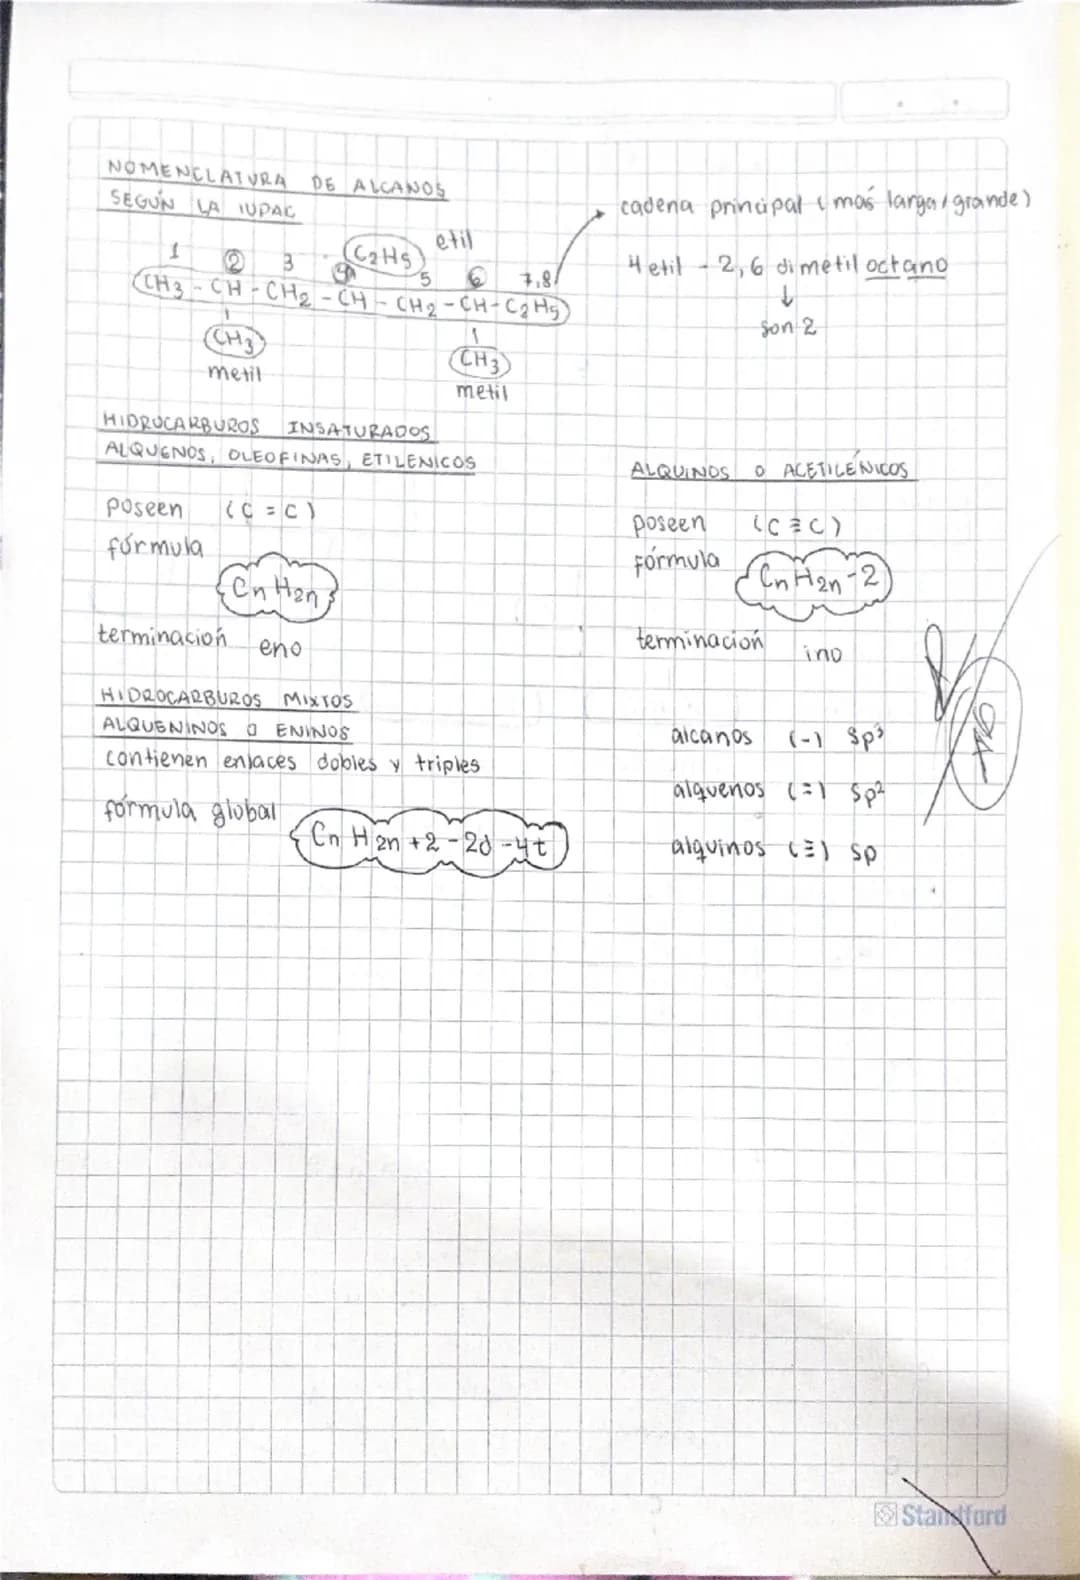 NOMENCLATURA DE ALCANOS
SEGÚN LA IUPAC
1 2 3 4 5 6 7,8
C2H5 etil
CH3 - CH - CH2 - CH - CH2 - CH - C2H5
CH3 CH3
metil metil
cadena principal (más larga/grande)
4 etil - 2,6 dimetil octano
↓
son 2
HIDRUCARBUROS INSATURADOS
ALQUENOS, OLEOFINAS, ETILENICOS
poseen (C = C)
fórmula
CnH2n
terminación eno
ALQUINOS O ACETILÉNICOS
poseen (C ≡ C)
fórmula CnH2n-2
terminación ino
HIDROCARBUROS MIXTOS
ALQUENINOS O ENINOS
contienen enlaces dobles y triples
fórmula global
CnH2n+2-2d-4t
alcanos (-) sp³
alquenos (=) sp²
alquinos (≡) sp
Standford